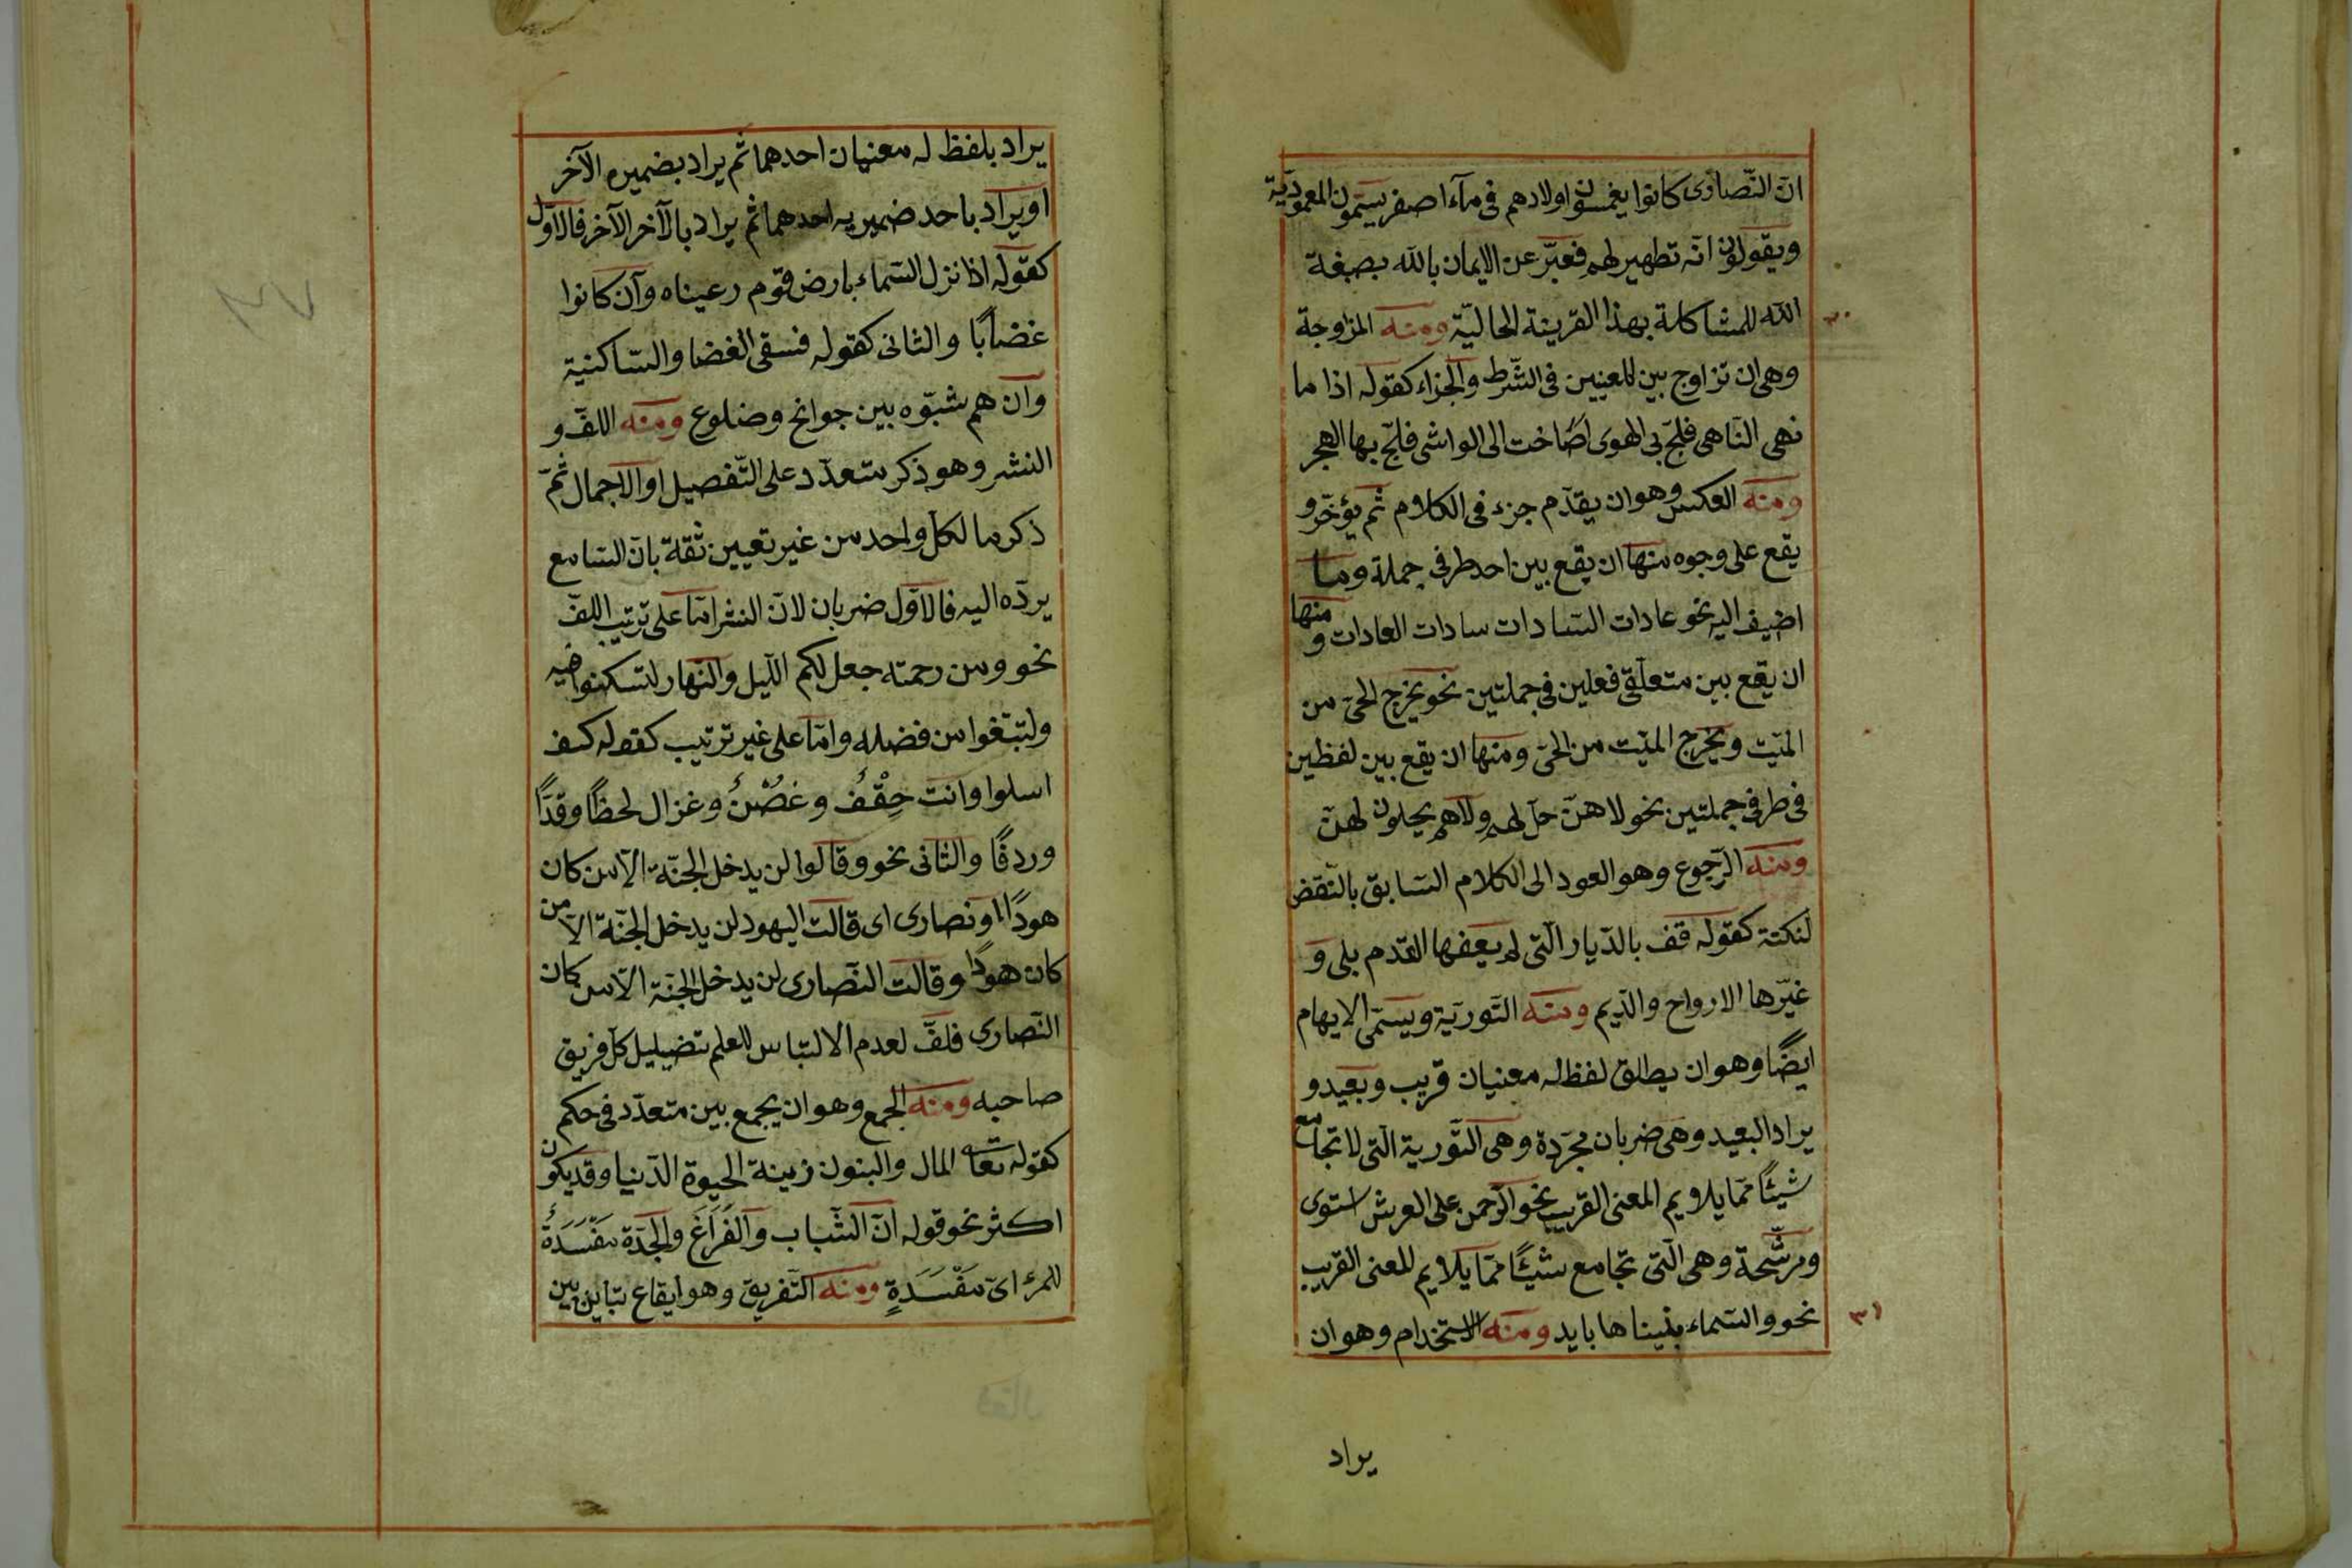 ان النّصارى كانوا يغمسون اولادهم فى مآء اصفر يسمّون المعموديّة
ويقولون انّه تطهير لهم فعبّر عن الايمان بالله بصبغة
الله للمشاكلة بهذا القرينة الحاليّة ومنه المزاوجة
وهى ان تزاوج بين المعنيين فى الشّرط والجزاء كقوله اذا ما
نهى النّاهى فلجّ بى الهوى اصاخت الى الواشى فلجّ بها الهجر
ومنه العكس وهو ان يقدّم جزء فى الكلام ثم يؤخّر و
يقع على وجوه منها ان يقع بين احد طرفى جملة وما
اضيف اليه نحو عادات السّادات سادات العادات ومنها
ان يقع بين متعلّقى فعلين فى جملتين نحو يخرج الحىّ من
الميّت ويخرج الميّت من الحىّ ومنها ان يقع بين لفظين
فى طرفى جملتين نحو لا هنّ حلّ لهم ولا هم يحلون لهنّ
ومنه الرّجوع وهو العود الى الكلام السّابق بالنّقض
لنكتة كقوله قف بالدّيار الّتى لم يعفها القدم بلى و
غيّرها الارواح والدّيم ومنه التّورية ويسمّى الايهام
ايضًا وهو ان يطلق لفظ له معنيان قريب وبعيد و
يراد البعيد وهى ضربان مجرّدة وهى التّورية الّتى لا تجامع
شيئًا ممّا يلايم المعنى القريب نحو الرّحمن على العرش استوى
ومرشّحة وهى الّتى تجامع شيئًا ممّا يلايم المعنى القريب
نحو والسّماء بنيناها بايد ومنه الاستخدام وهو ان
يراد
٣٠
٣١
يراد بلفظ له معنيان احدهما ثم يراد بضميره الآخر
او يراد باحد ضميريه احدهما ثم يراد بالآخر الآخر فالاوّل
كقوله اذا نزل السّماء بارض قوم رعيناه وان كانوا
غضابًا والثانى كقوله فسقى الغضا والسّاكنيه
وان هم شبّوه بين جوانح وضلوع ومنه اللفّ و
النشر وهو ذكر متعدّد على التّفصيل او الاجمال ثمّ
ذكر ما لكلّ واحد من غير تعيين ثقة بانّ السّامع
يردّه اليه فالاوّل ضربان لانّ النشر امّا على ترتيب اللفّ
نحو ومن رحمته جعل لكم اللّيل والنّهار لتسكنوا فيه
ولتبتغوا من فضله وامّا على غير ترتيب كقوله كيف
اسلوا وانت حِقْفُ وغصْنُ وغزال لحظًا وقدًّا
وردفًا والثانى نحو وقالوا لن يدخل الجنّة الّا من كان
هودًا او نصارى اى قالت اليهود لن يدخل الجنّة الّا من
كان هودًا وقالت النّصارى لن يدخل الجنّة الّا من كان
النّصارى فلفّ لعدم الالتباس للعلم بتضليل كلّ فريق
صاحبه ومنه الجمع وهو ان يجمع بين متعدّد فى حكم
كقوله تعاله المال والبنون زينة الحيوة الدّنيا وقد يكون
اكثر نحو قوله انّ الشّباب والفراغ والجدة مفسدة
للمرء اىّ مفسدةٍ ومنه التّفريق وهو ايقاع تباين بين